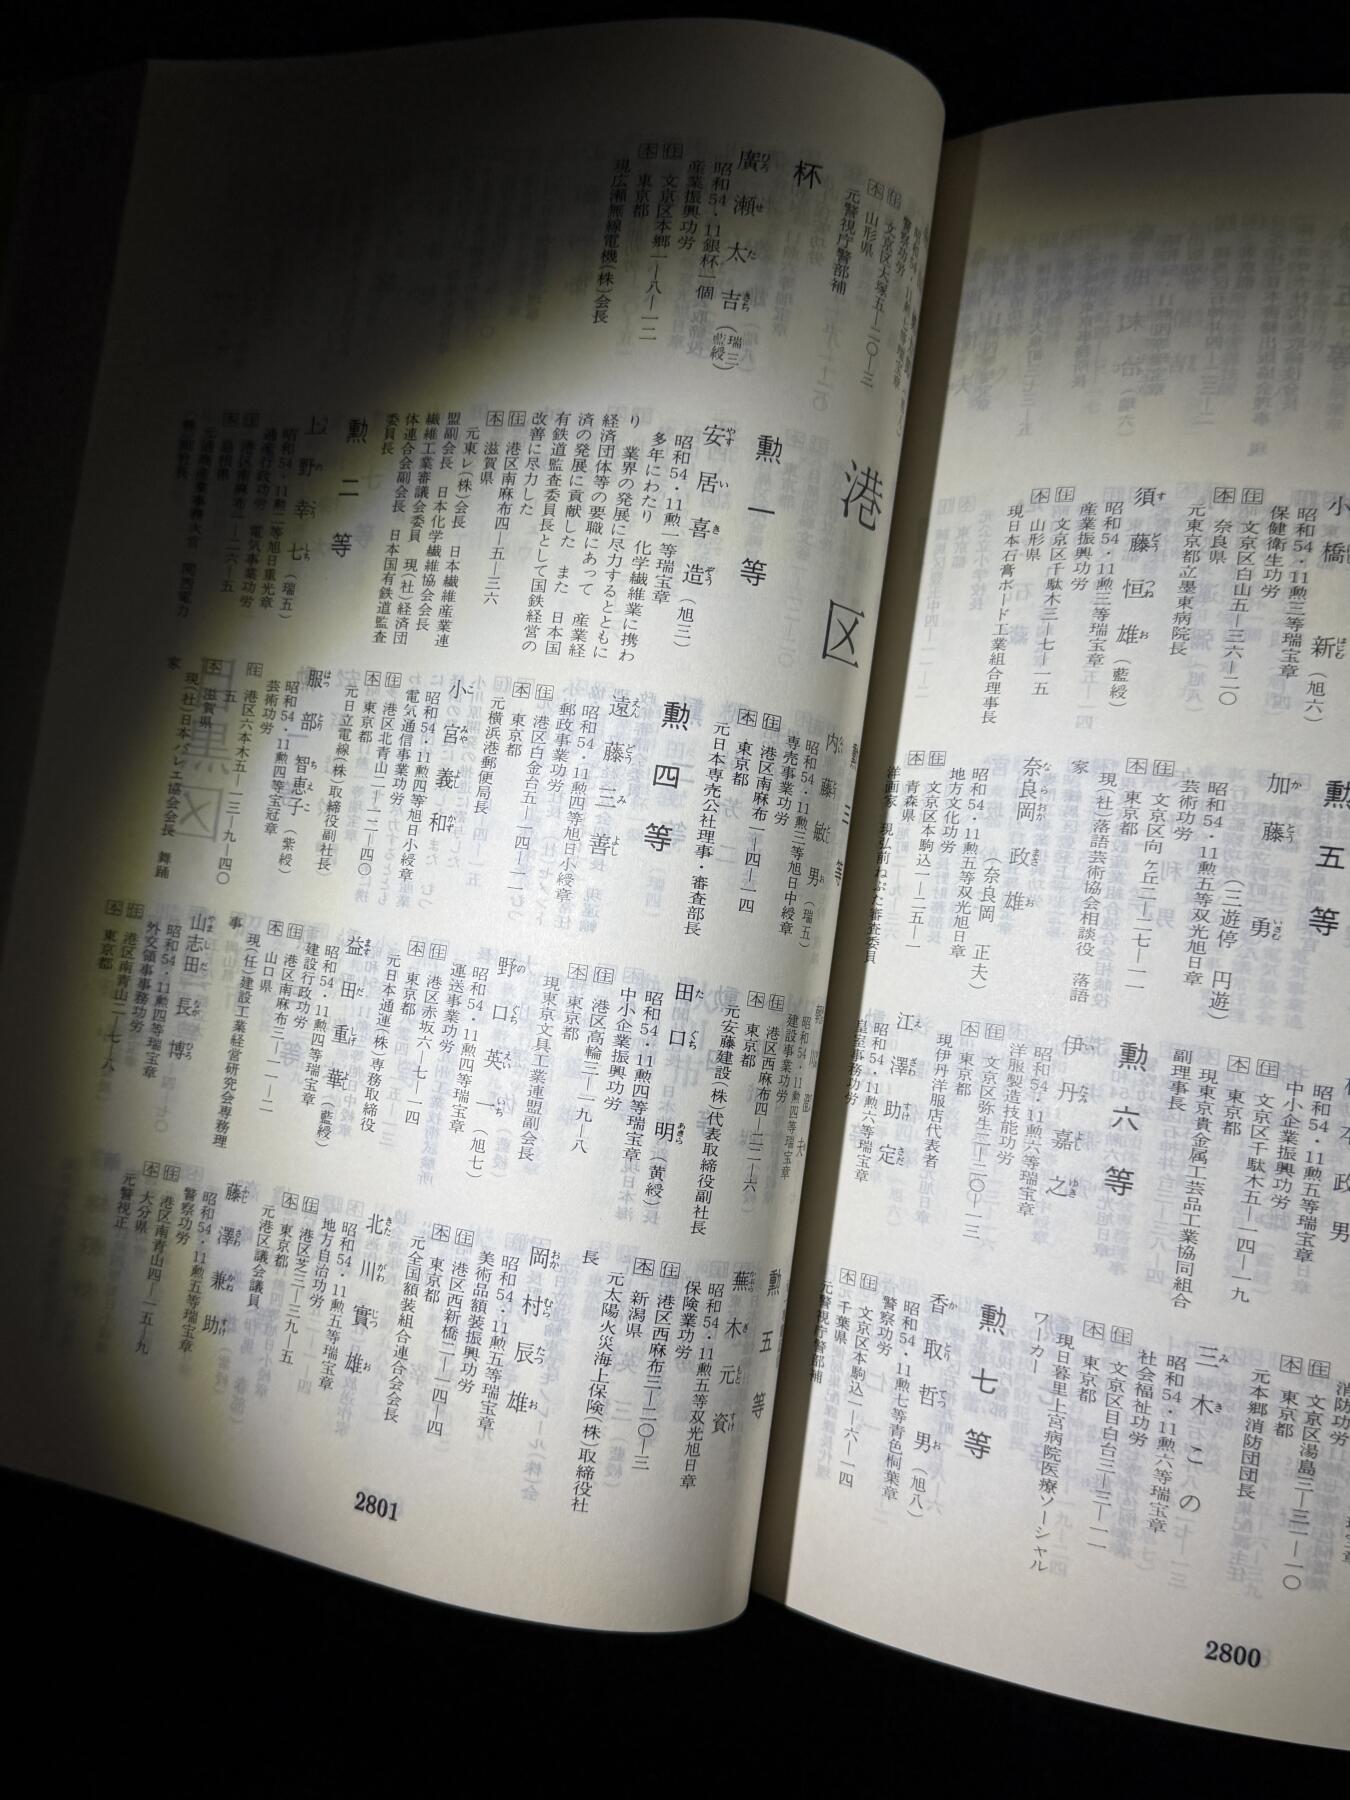 小橋 新（旭六）
昭和54・11勲三等瑞宝章
保健衛生功労
住 文京区白山五―三六―二〇
本 奈良県
元東京都立墨東病院長
須藤恒雄（藍綬）
昭和54・11勲三等瑞宝章
産業振興功労
住 文京区千駄木三―七―一五
本 山形県
現日本石膏ボード工業組合理事長
勲五等
加藤 勇
（三遊亭 円遊）
昭和54・11勲五等双光旭日章
芸術功労
住 文京区向ケ丘二―二七―一一
本 東京都
現（社）落語芸術協会相談役 落語
家
奈良岡政雄
（奈良岡 正夫）
昭和54・11勲五等双光旭日章
地方文化功労
住 文京区本駒込一―二五―一
本 青森県
洋画家 現弘前ねぷた審査委員
昭和54・11勲五等瑞宝章
中小企業振興功労
住 文京区千駄木五―一四―一九
本 東京都
現東京貴金属工芸品工業協同組合
副理事長
勲六等
伊丹嘉之
昭和54・11勲六等瑞宝章
洋服製造技能功労
住 文京区弥生二―二〇―一三
本 東京都
現伊丹洋服店代表者
江澤助定
昭和54・11勲六等瑞宝章
皇室事務功労
消防功労
住 文京区湯島三―三一―一〇
本 東京都
元本郷消防団団長
三木このゑ
昭和54・11勲六等瑞宝章
社会福祉功労
住 文京区目白台三―三―一一
本 東京都
現日暮里上宮病院医療ソーシャル
ワーカー
勲七等
香取哲男（旭八）
昭和54・11勲七等青色桐葉章
警察功労
住 文京区本駒込一―六―一四
本 千葉県
元警視庁警部補
2800
警察功労
住 文京区大塚五―二〇―三
本 山形県
元警視庁警部補
杯
廣瀬太吉（瑞三）（藍綬）
昭和54・11銀杯一個
産業振興功労
住 文京区本郷一―八―一二
本 東京都
現広瀬無線電機（株）会長
港区
勲一等
安居喜造（旭三）
昭和54・11勲一等瑞宝章
多年にわたり 化学繊維業に携わ
り 業界の発展に尽力するとともに
経済団体等の要職にあって 産業経
済の発展に貢献した また 日本国
有鉄道監査委員長として国鉄経営の
改善に尽力した
住 港区南麻布四―五―三六
本 滋賀県
元東レ（株）会長 日本繊維産業連
盟副会長 日本化学繊維協会会長
繊維工業審議会委員 現（社）経済団
体連合会副会長 日本国有鉄道監査
委員長
勲二等
上野幸七（瑞五）
昭和54・11勲二等旭日重光章
通産行政功労 電気事業功労
住 港区南麻布一―二六―五
本 島根県
元通商産業事務次官 関西電力
（株）副社長
勲三等
内藤敏男（瑞五）
昭和54・11勲三等旭日中綬章
専売事業功労
住 港区南麻布一―四―一四
本 東京都
元日本専売公社理事・審査部長
勲四等
遠藤三善
昭和54・11勲四等旭日小綬章
郵政事業功労
住 港区白金台五―一四―一一
本 東京都
元横浜港郵便局長
小宮義和
昭和54・11勲四等旭日小綬章
電気通信事業功労
住 港区北青山二―一二―四〇
本 東京都
元日立電線（株）取締役副社長
服部智恵子（紫綬）
昭和54・11勲四等宝冠章
芸術功労
住 港区六本木五―一三―九―四〇
五
本 滋賀県
現（社）日本バレエ協会会長 舞踊
家
昭和54・11勲四等瑞宝章
建設事業功労
住 港区西麻布四―二二―六
本 東京都
元安藤建設（株）代表取締役副社長
田口 明（黄綬）
昭和54・11勲四等瑞宝章
中小企業振興功労
住 港区高輪三―一九―八
本 東京都
現東京文具工業連盟副会長
野口英一（旭七）
昭和54・11勲四等瑞宝章
運送事業功労
住 港区赤坂六―七―一四
本 東京都
元日本通運（株）専務取締役
益田重華（藍綬）
昭和54・11勲四等瑞宝章
建設行政功労
住 港区南麻布三―一一―二
本 山口県
現（任）建設工業経営研究会専務理
事
山志田長博
昭和54・11勲四等瑞宝章
外交領事事務功労
住 港区南青山二―七―八
本 東京都
勲五等
蕪木元資
昭和54・11勲五等双光旭日章
保険業功労
住 港区西麻布三―二〇―三
本 新潟県
元太陽火災海上保険（株）取締役社
長
岡村辰雄
昭和54・11勲五等瑞宝章
美術品額装振興功労
住 港区西新橋二―一四―四
本 東京都
元全国額装組合連合会会長
北川實雄
昭和54・11勲五等瑞宝章
地方自治功労
住 港区芝三―三九―五
本 東京都
元港区議会議員
藤澤兼助
昭和54・11勲五等瑞宝章
警察功労
住 港区南青山四―一五―九
本 大分県
元警視正
2801